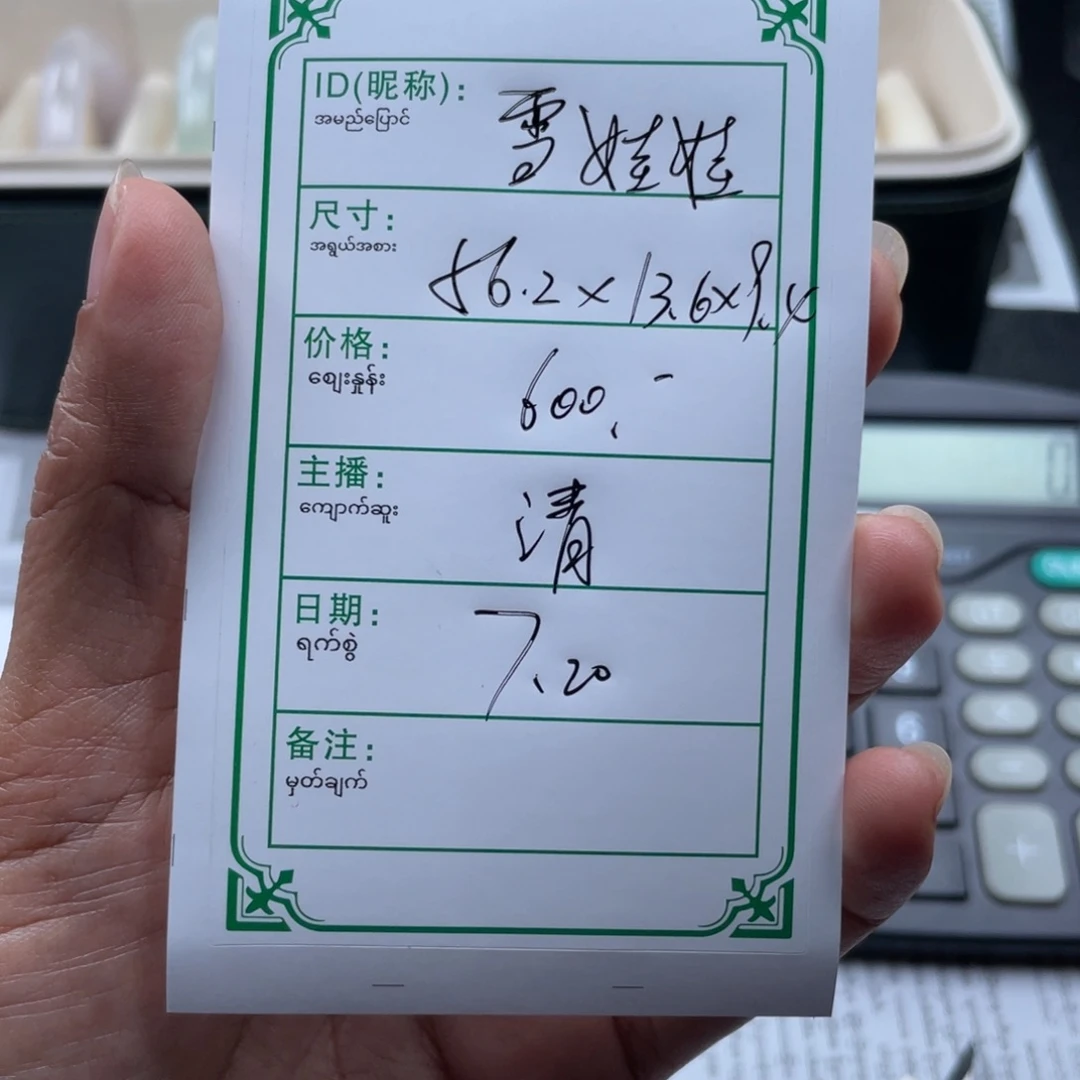 ID(昵称): 雪娃娃
အမည်ပြောင်
尺寸: 56.2×13.6×9.4
အရွယ်အစား
价格: 600.-
ဈေးနှုန်း
主播: 清
ကျောက်ဆူး
日期: 7.20
ရက်စွဲ
备注:
မှတ်ချက်